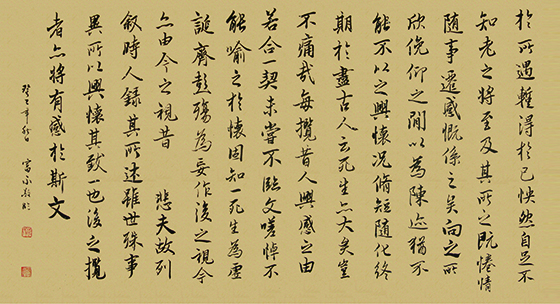 於所遇蹔得於己怏然自足不
知老之將至及其所之既惓情
隨事遷感慨係之矣向之所
欣俛仰之閒以為陳迹猶不
能不以之興懷況脩短隨化終
期於盡古人云死生亦大矣豈
不痛哉每攬昔人興感之由
若合一契未嘗不臨文嗟悼不
能喻之於懷固知一死生為虛
誕齊彭殤為妄作後之視今
亦由今之視昔 悲夫故列
敘時人錄其所述雖世殊事
異所以興懷其致一也後之攬
者亦將有感於斯文
癸巳年秋